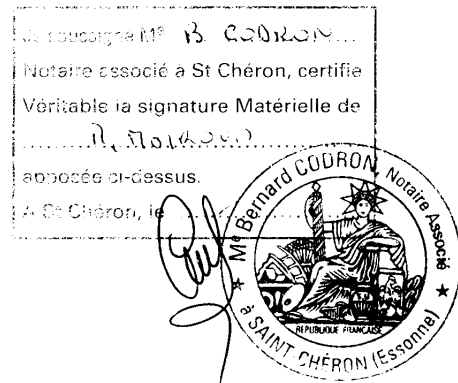 Je soussigné Me B. CODRON...
Notaire associé à St Chéron, certifie
Véritable la signature Matérielle de
apposée ci-dessus.
A St Chéron, le
★ Me Bernard CODRON, Notaire Associé ★
à SAINT-CHÉRON (Essonne)
REPUBLIQUE FRANCAISE